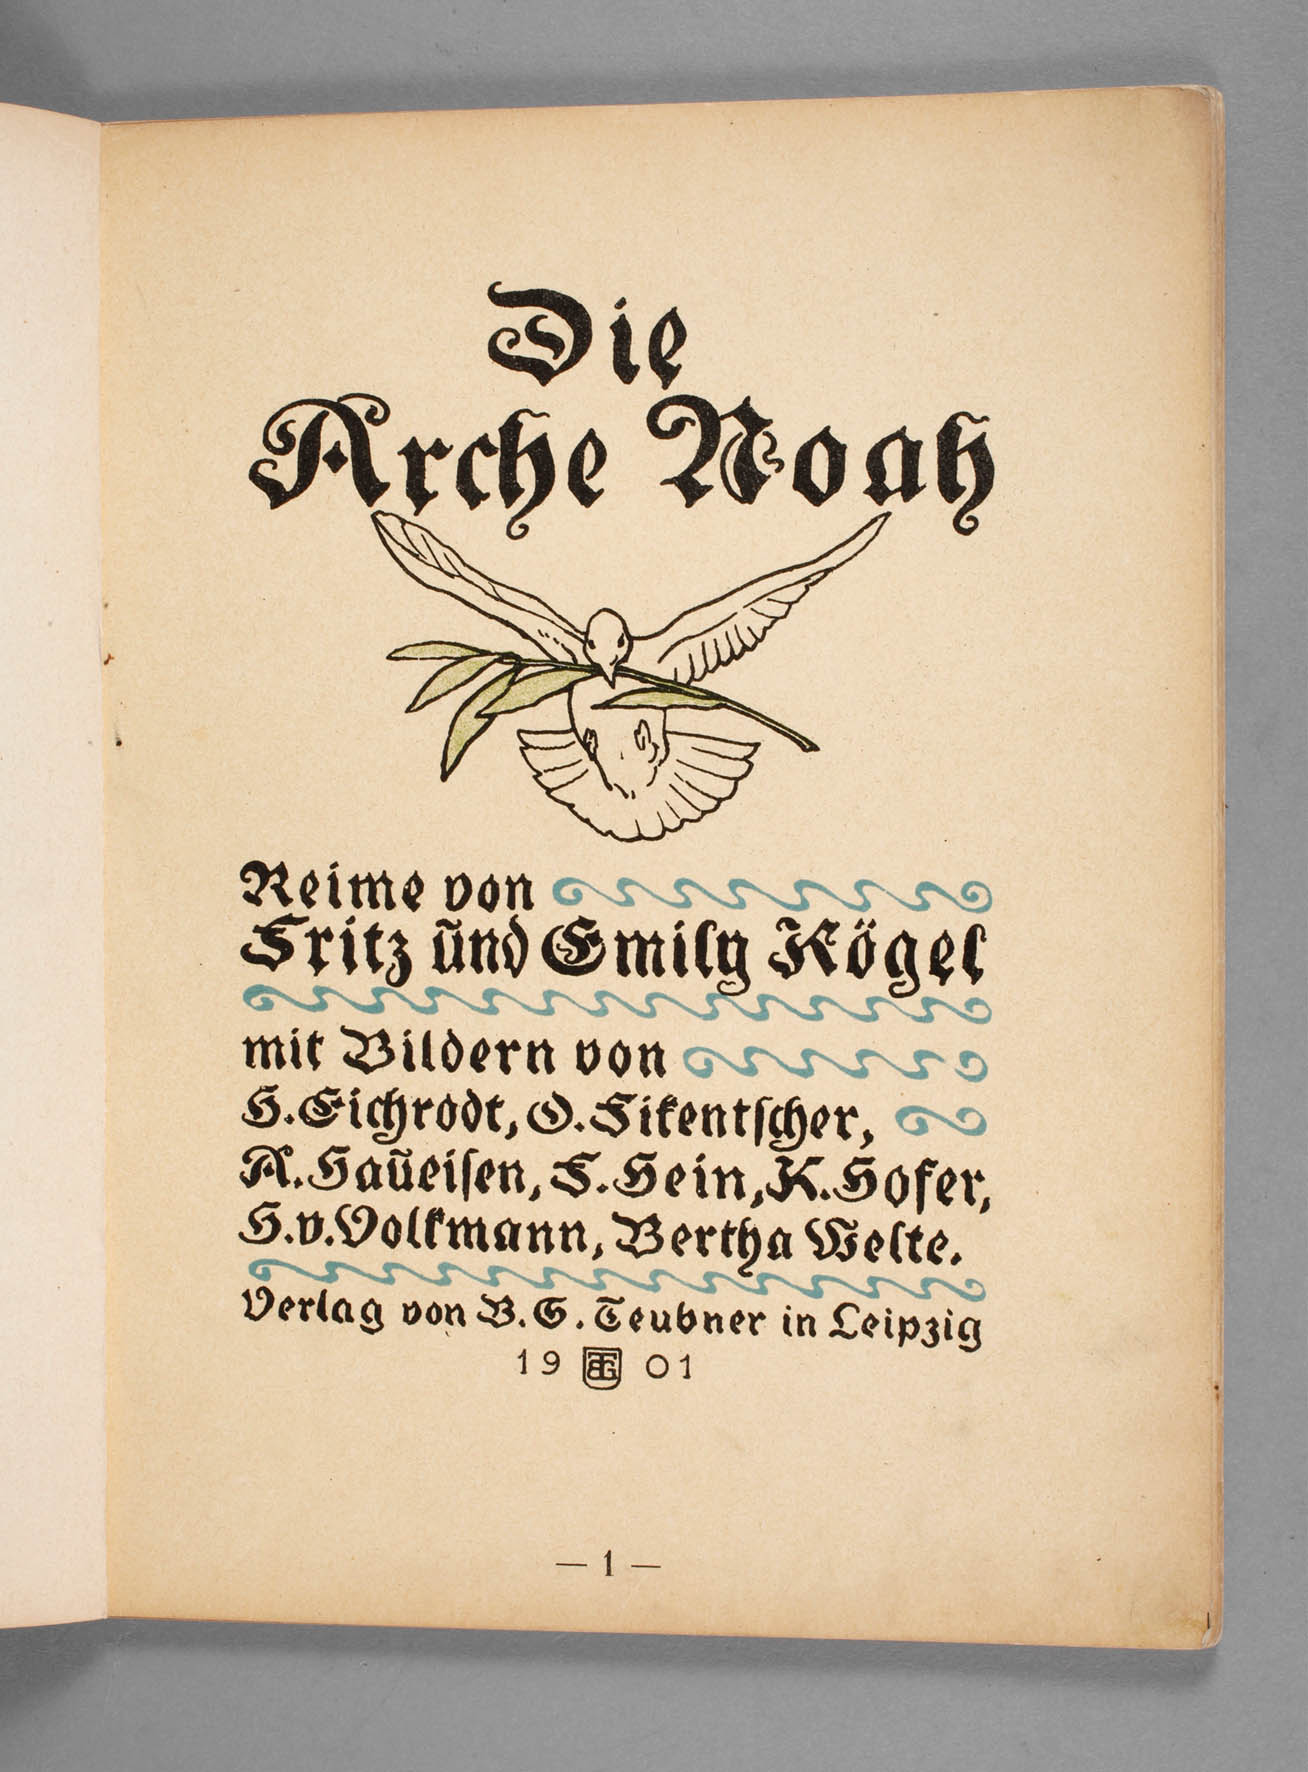 Die
Arche Noah
Reime von
Fritz und Emily Kögel
mit Bildern von
H. Eichrodt, O. Fikentscher,
A. Haueisen, F. Hein, K. Hofer,
H. v. Volkmann, Bertha Welte.
Verlag von B. G. Teubner in Leipzig
19 BTG 01
— 1 —